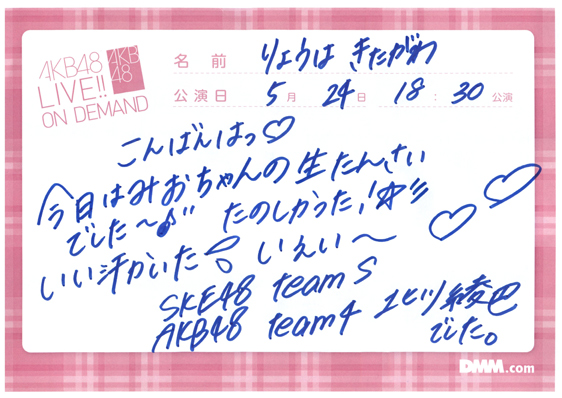 AKB48
LIVE!!
ON DEMAND
AKB
48
名前 りょうは きたがわ
公演日 5月 24日 18:30公演
こんばんはっ♡
今日はみおちゃんの生たんさい
でした〜♪" たのしかった!
いい汗かいた いえい〜
SKE48 teamS
AKB48 team4 北川綾巴
でした。
DMM.com